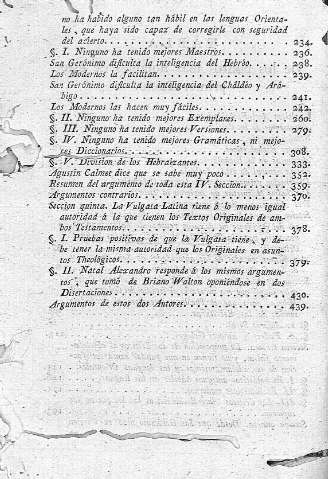 no ha habido alguno tan hábil en las lenguas Orienta-
les, que haya sido capaz de corregirle con seguridad
del acierto. 234.
§. I. Ninguno ha tenido mejores Maestros. 236.
San Gerónimo dificulta la inteligencia del Hebréo. 238.
Los Modernos la facilitan. 239.
San Gerónimo dificulta la inteligencia del Chaldéo y Ará-
bigo. 241.
Los Modernos las hacen muy fáciles. 242.
§. II. Ninguno ha tenido mejores Exemplares. 260.
§. III. Ninguno ha tenido mejores Versiones. 279.
§. IV. Ninguno ha tenido mejores Gramáticas, ni mejo-
res Diccionarios. 308.
§. V. Division de los Hebraizantes. 333.
Agustin Calmet dice que se sabe muy poco. 352.
Resumen del argumento de toda esta IV. Seccion. 359.
Argumentos contrarios. 370.
Seccion quinta. La Vulgata Latina tiene á lo menos igual
autoridad á la que tienen los Textos Originales de am-
bos Testamentos. 378.
§. I. Pruebas positivas de que la Vulgata tiene, y de-
be tener la misma autoridad que los Originales en asun-
tos Theológicos. 379.
§. II. Natal Alexandro responde á los mismos argumen-
tos, que tomó de Briano Walton oponiendose en dos
Disertaciones. 430.
Argumentos de estos dos Autores. 439.